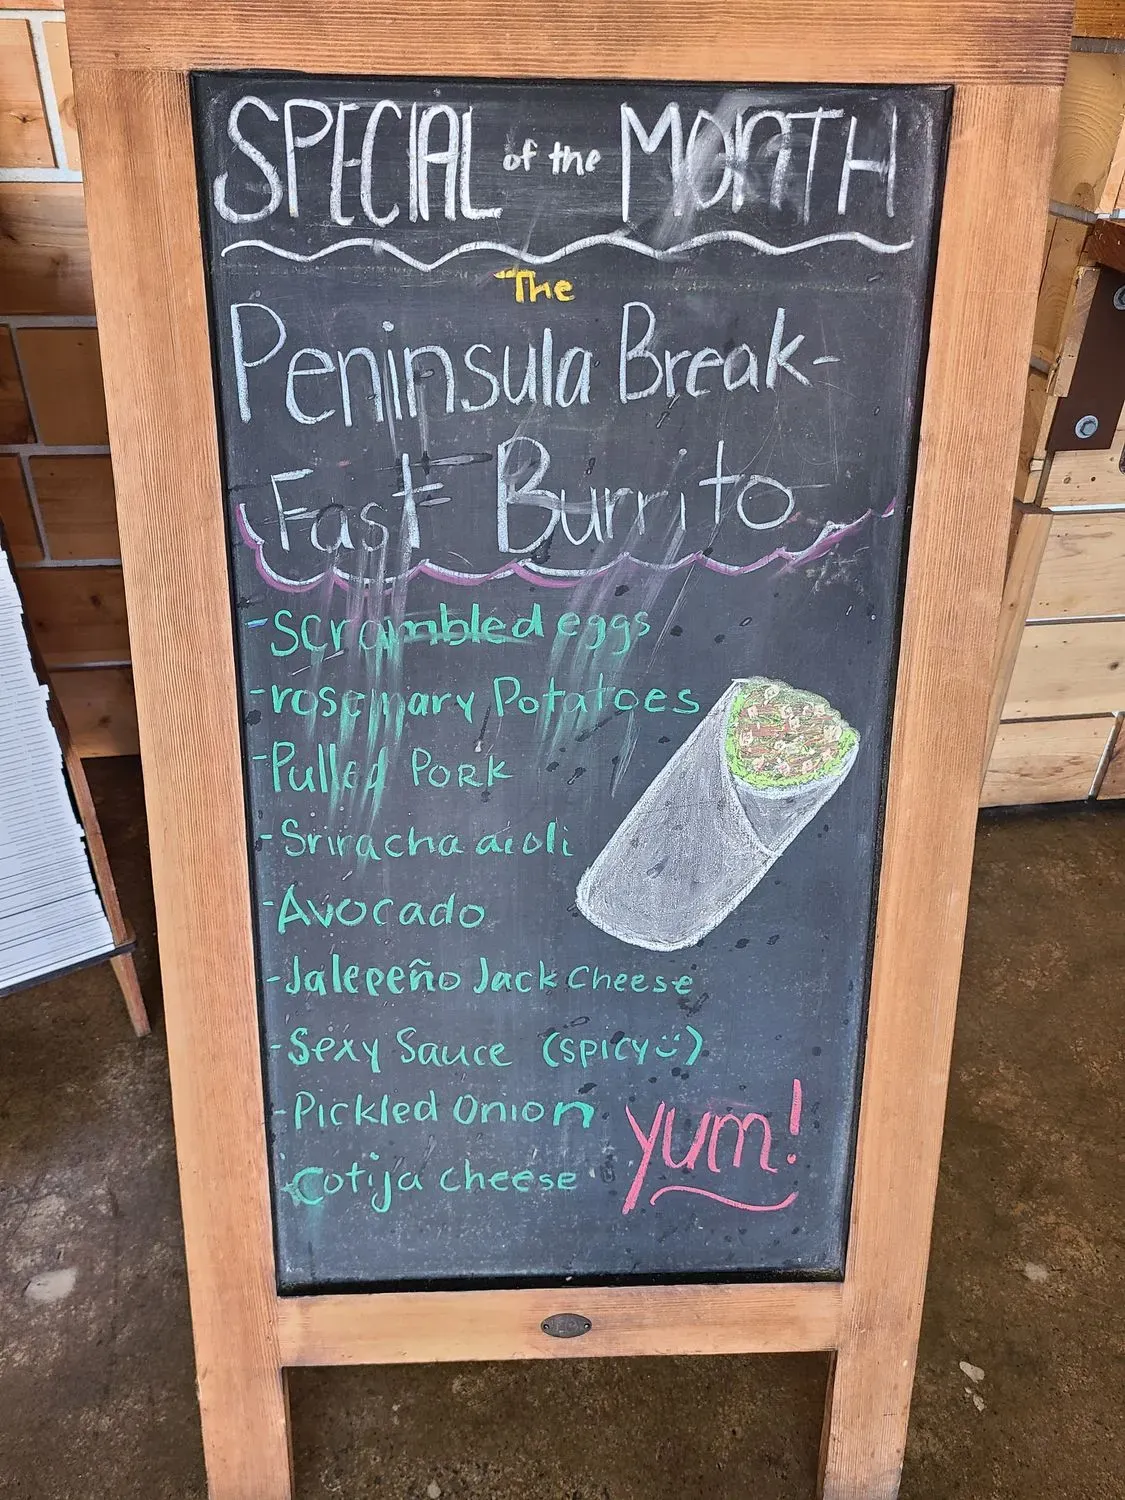 SPECIAL of the MONTH
The
Peninsula Break-
Fast Burrito
- Scrambled eggs
- rosemary Potatoes
- Pulled Pork
- Sriracha aioli
- Avocado
- Jalepeño Jack Cheese
- Sexy Sauce (spicy :))
- Pickled Onion
- Cotija cheese
yum!